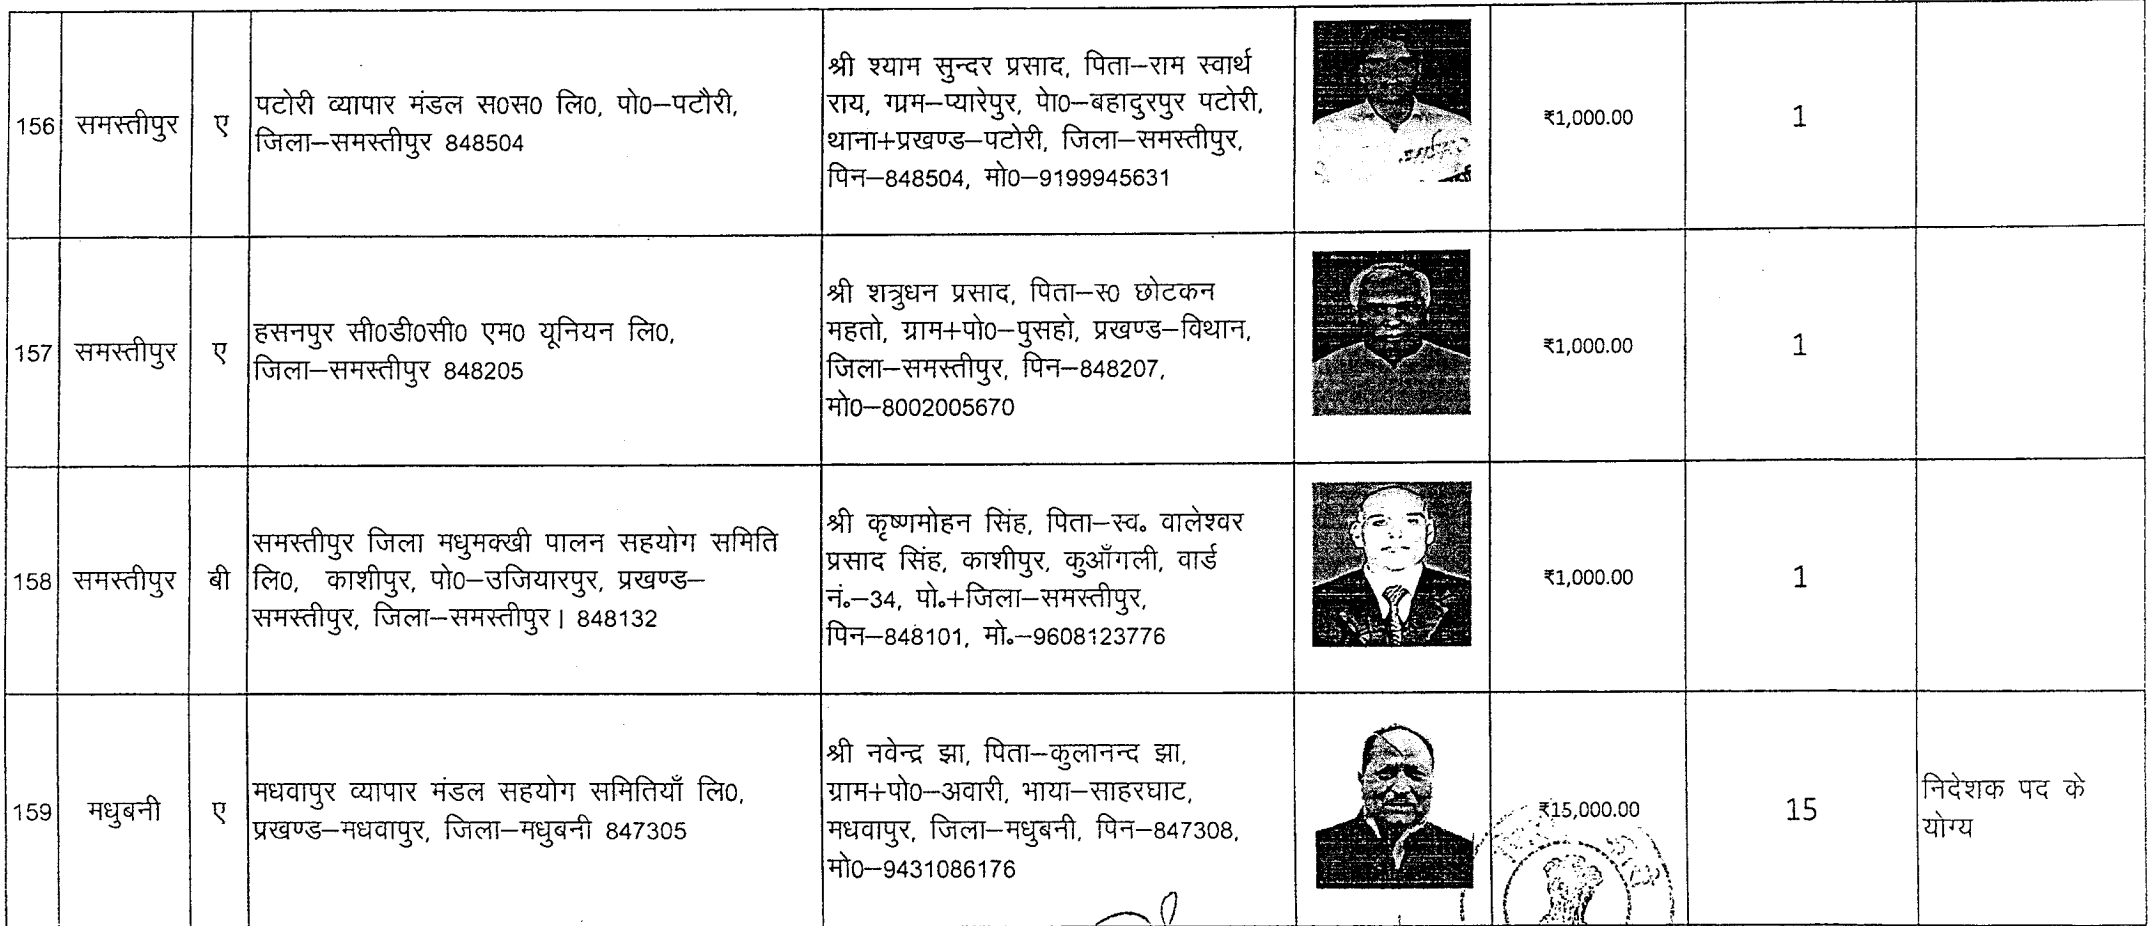 156 समस्तीपुर ए
पटोरी व्यापार मंडल स0स0 लि0, पो0–पटौरी,
जिला–समस्तीपुर 848504
श्री श्याम सुन्दर प्रसाद, पिता–राम स्वार्थ
राय, ग्राम–प्यारेपुर, पेा0–बहादुरपुर पटोरी,
थाना+प्रखण्ड–पटोरी, जिला–समस्तीपुर,
पिन–848504, मो0–9199945631
₹1,000.00
1
157 समस्तीपुर ए
हसनपुर सी0डी0सी0 एम0 यूनियन लि0,
जिला–समस्तीपुर 848205
श्री शत्रुधन प्रसाद, पिता–स0 छोटकन
महतो, ग्राम+पो0–पुसहो, प्रखण्ड–विथान,
जिला–समस्तीपुर, पिन–848207,
मो0–8002005670
₹1,000.00
1
158 समस्तीपुर बी
समस्तीपुर जिला मधुमक्खी पालन सहयोग समिति
लि0, काशीपुर, पो0–उजियारपुर, प्रखण्ड–
समस्तीपुर, जिला–समस्तीपुर। 848132
श्री कृष्णमोहन सिंह, पिता–स्व॰ वालेश्वर
प्रसाद सिंह, काशीपुर, कुआँगली, वार्ड
नं॰–34, पो॰+जिला–समस्तीपुर,
पिन–848101, मो॰–9608123776
₹1,000.00
1
159 मधुबनी ए
मधवापुर व्यापार मंडल सहयोग समितियाँ लि0,
प्रखण्ड–मधवापुर, जिला–मधुबनी 847305
श्री नवेन्द्र झा, पिता–कुलानन्द झा,
ग्राम+पो0–अवारी, भाया–साहरघाट,
मधवापुर, जिला–मधुबनी, पिन–847308,
मो0–9431086176
₹15,000.00
15
निदेशक पद के
योग्य